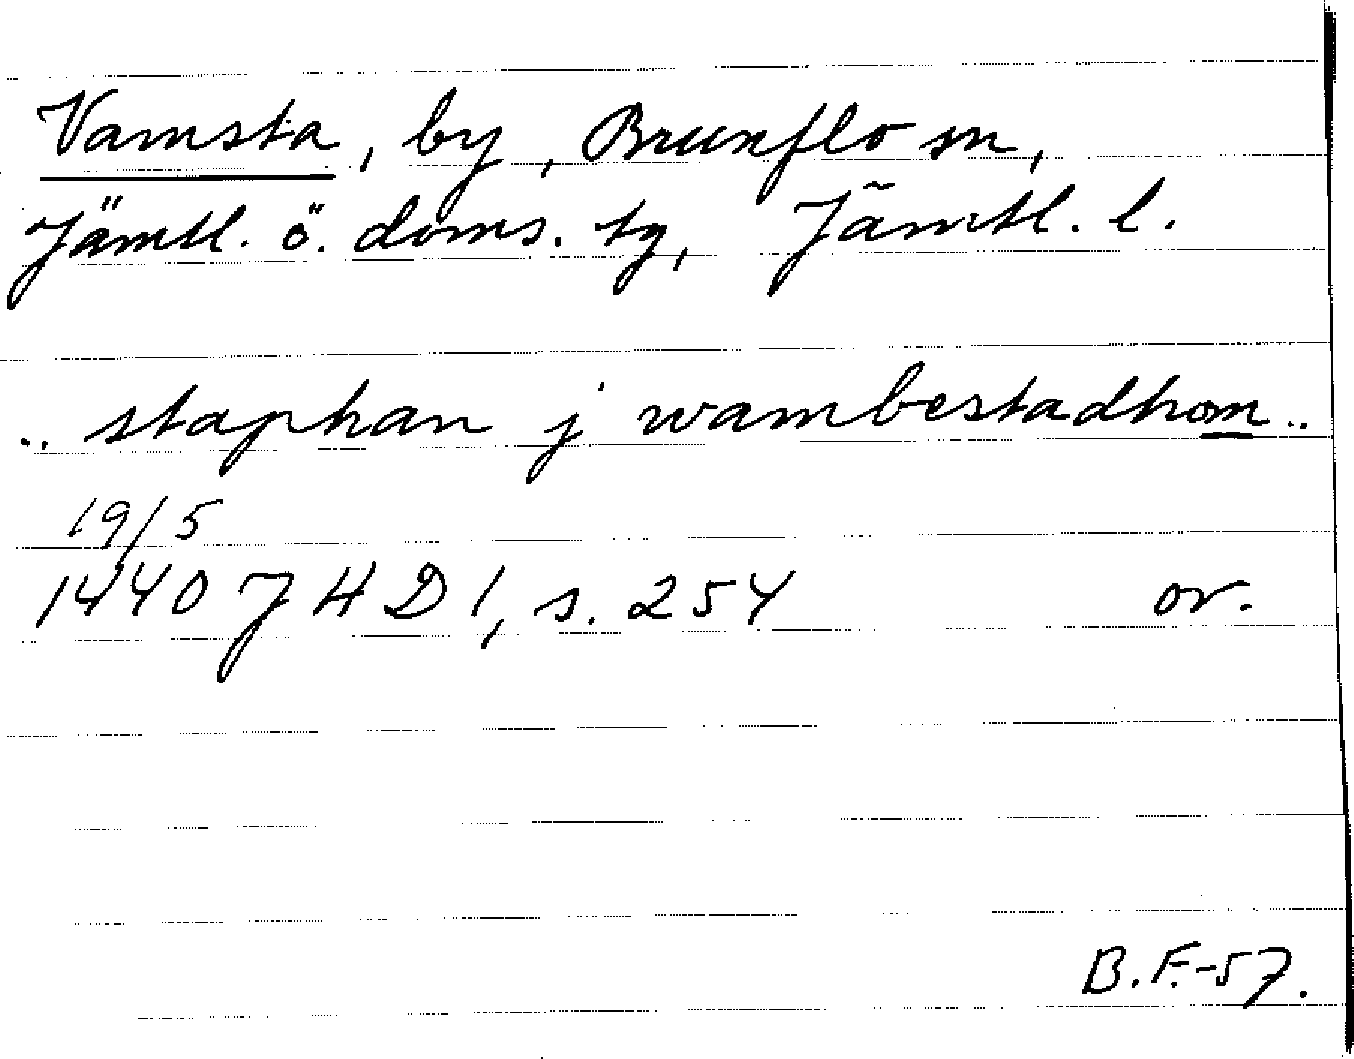 Vamsta, by, Brunflo sn,
Jämtl. ö. doms. tg, Jämtl. l.
.. staphan j wambestadhom ..
19/5
1440 JHD 1, s. 254 or.
B.F.-57.